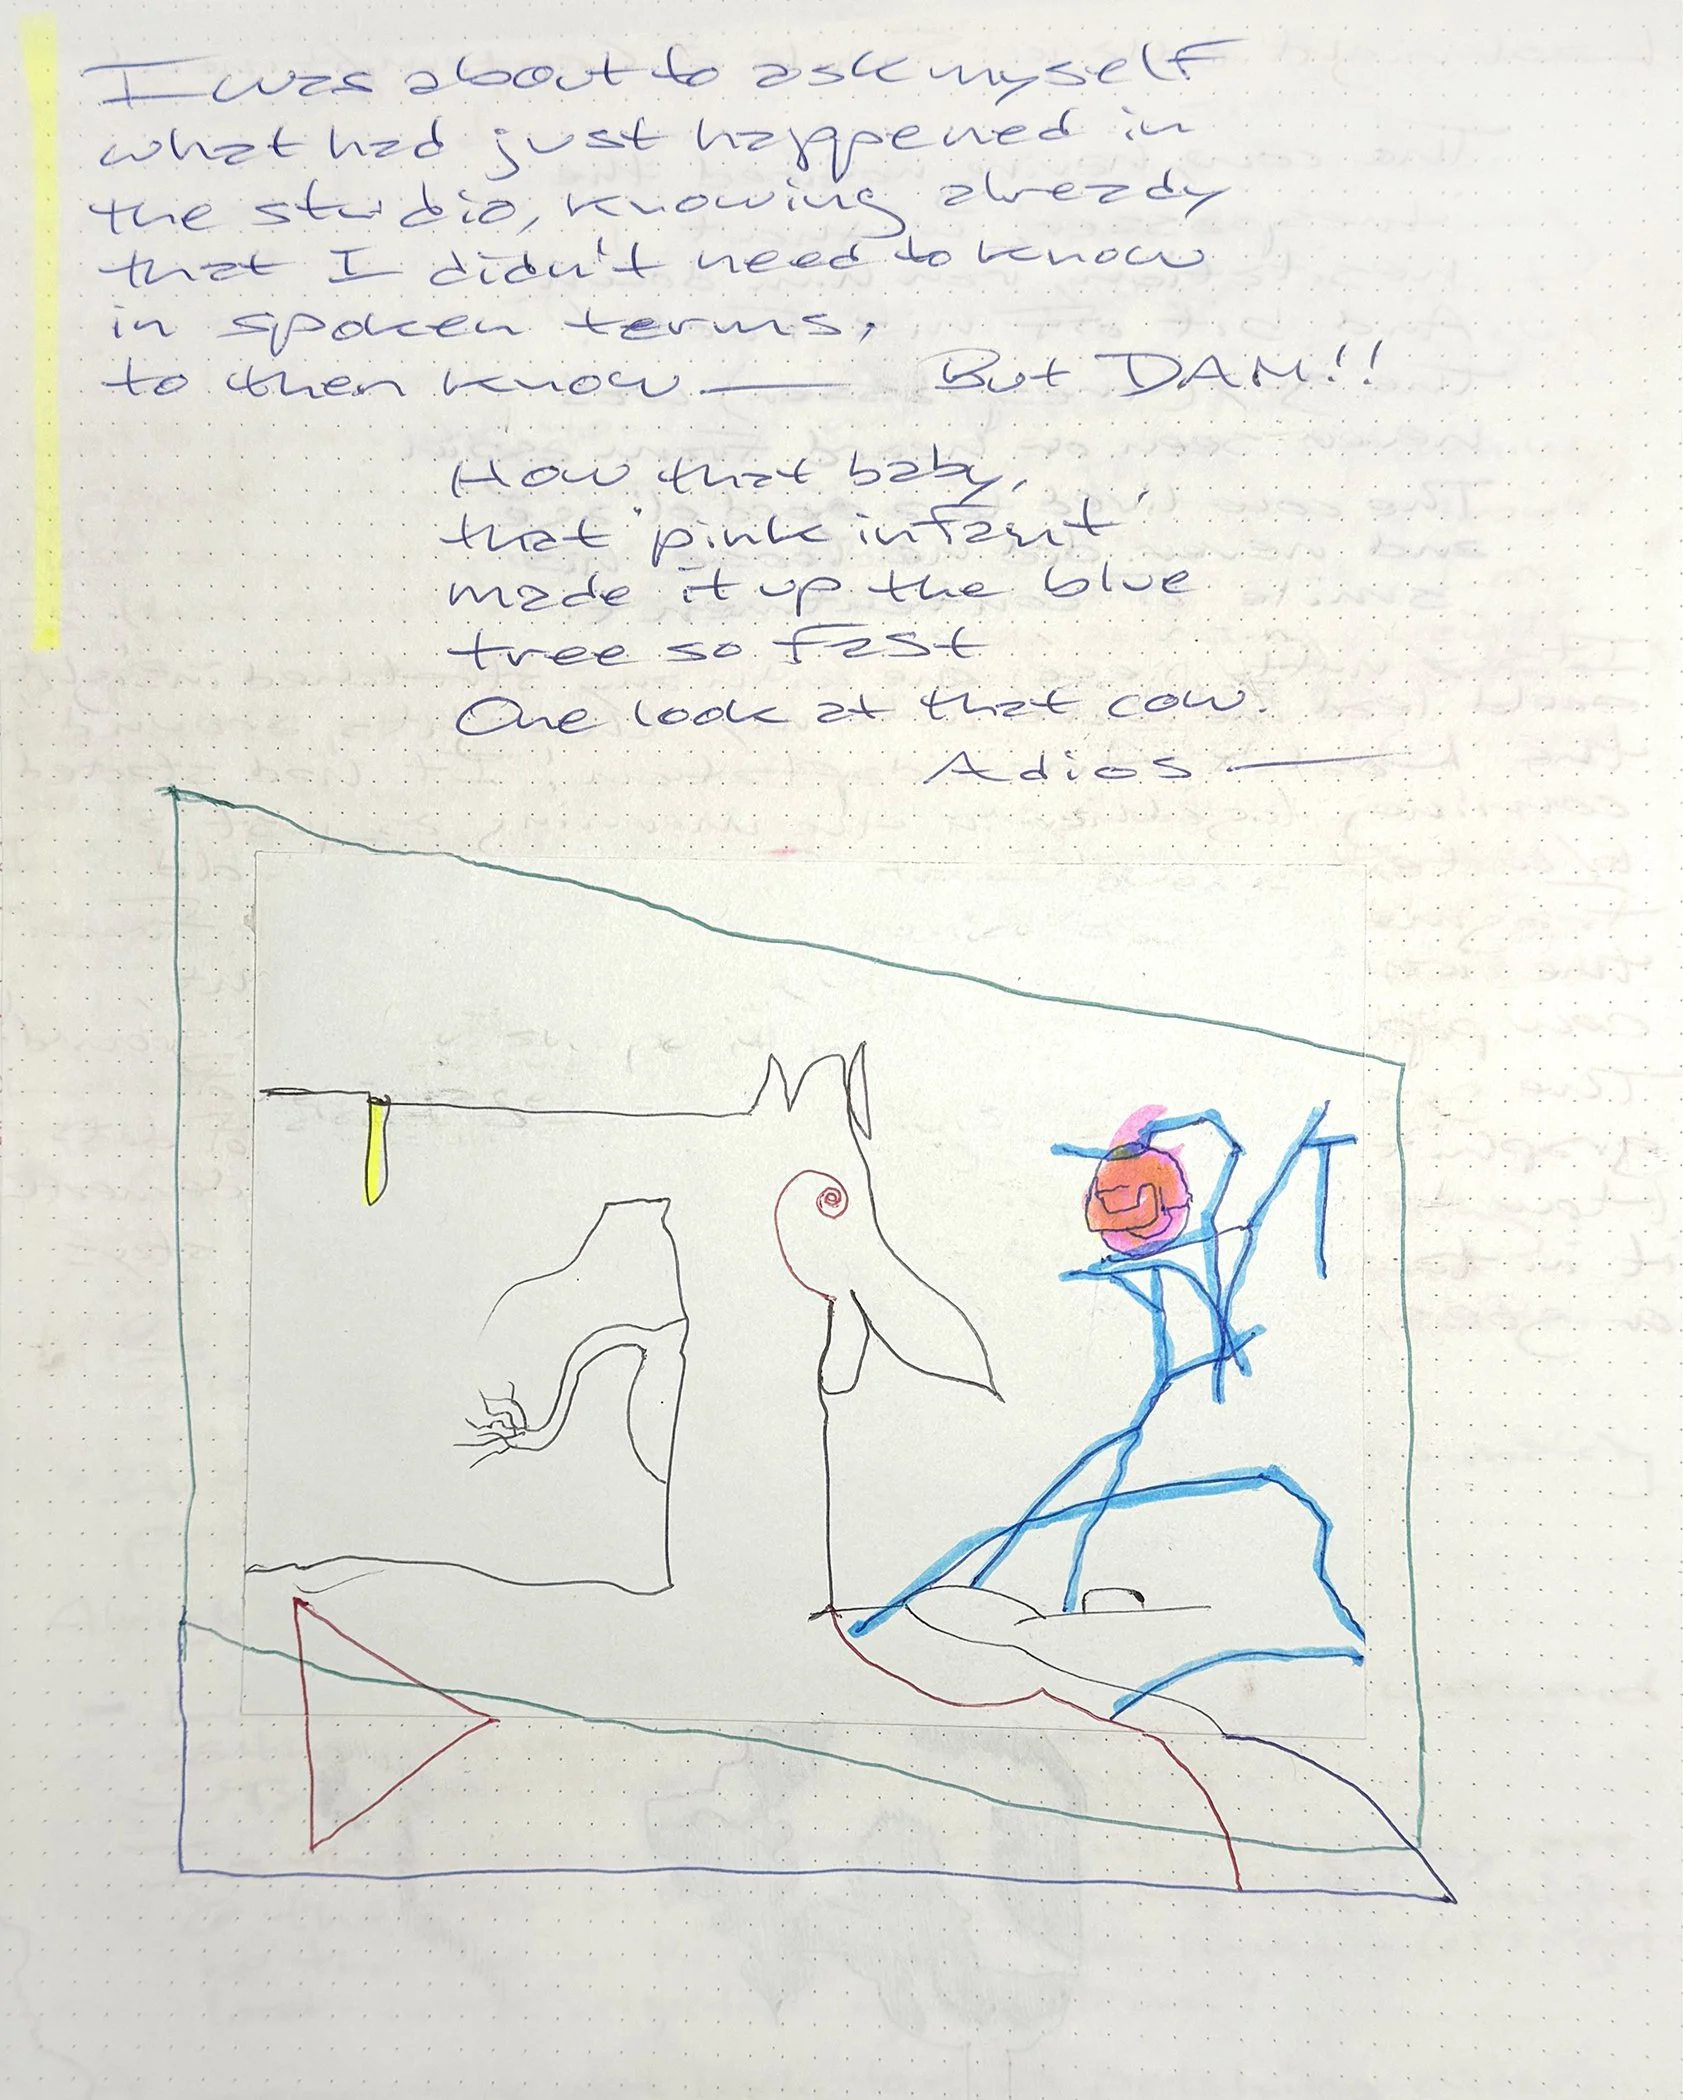 I was about to ask myself
what had just happened in
the studio, knowing already
that I didn't need to know
in spoken terms,
to then know — But DAM!!
How that baby,
that 'pink infant'
made it up the blue
tree so fast
One look at that cow.
Adios —